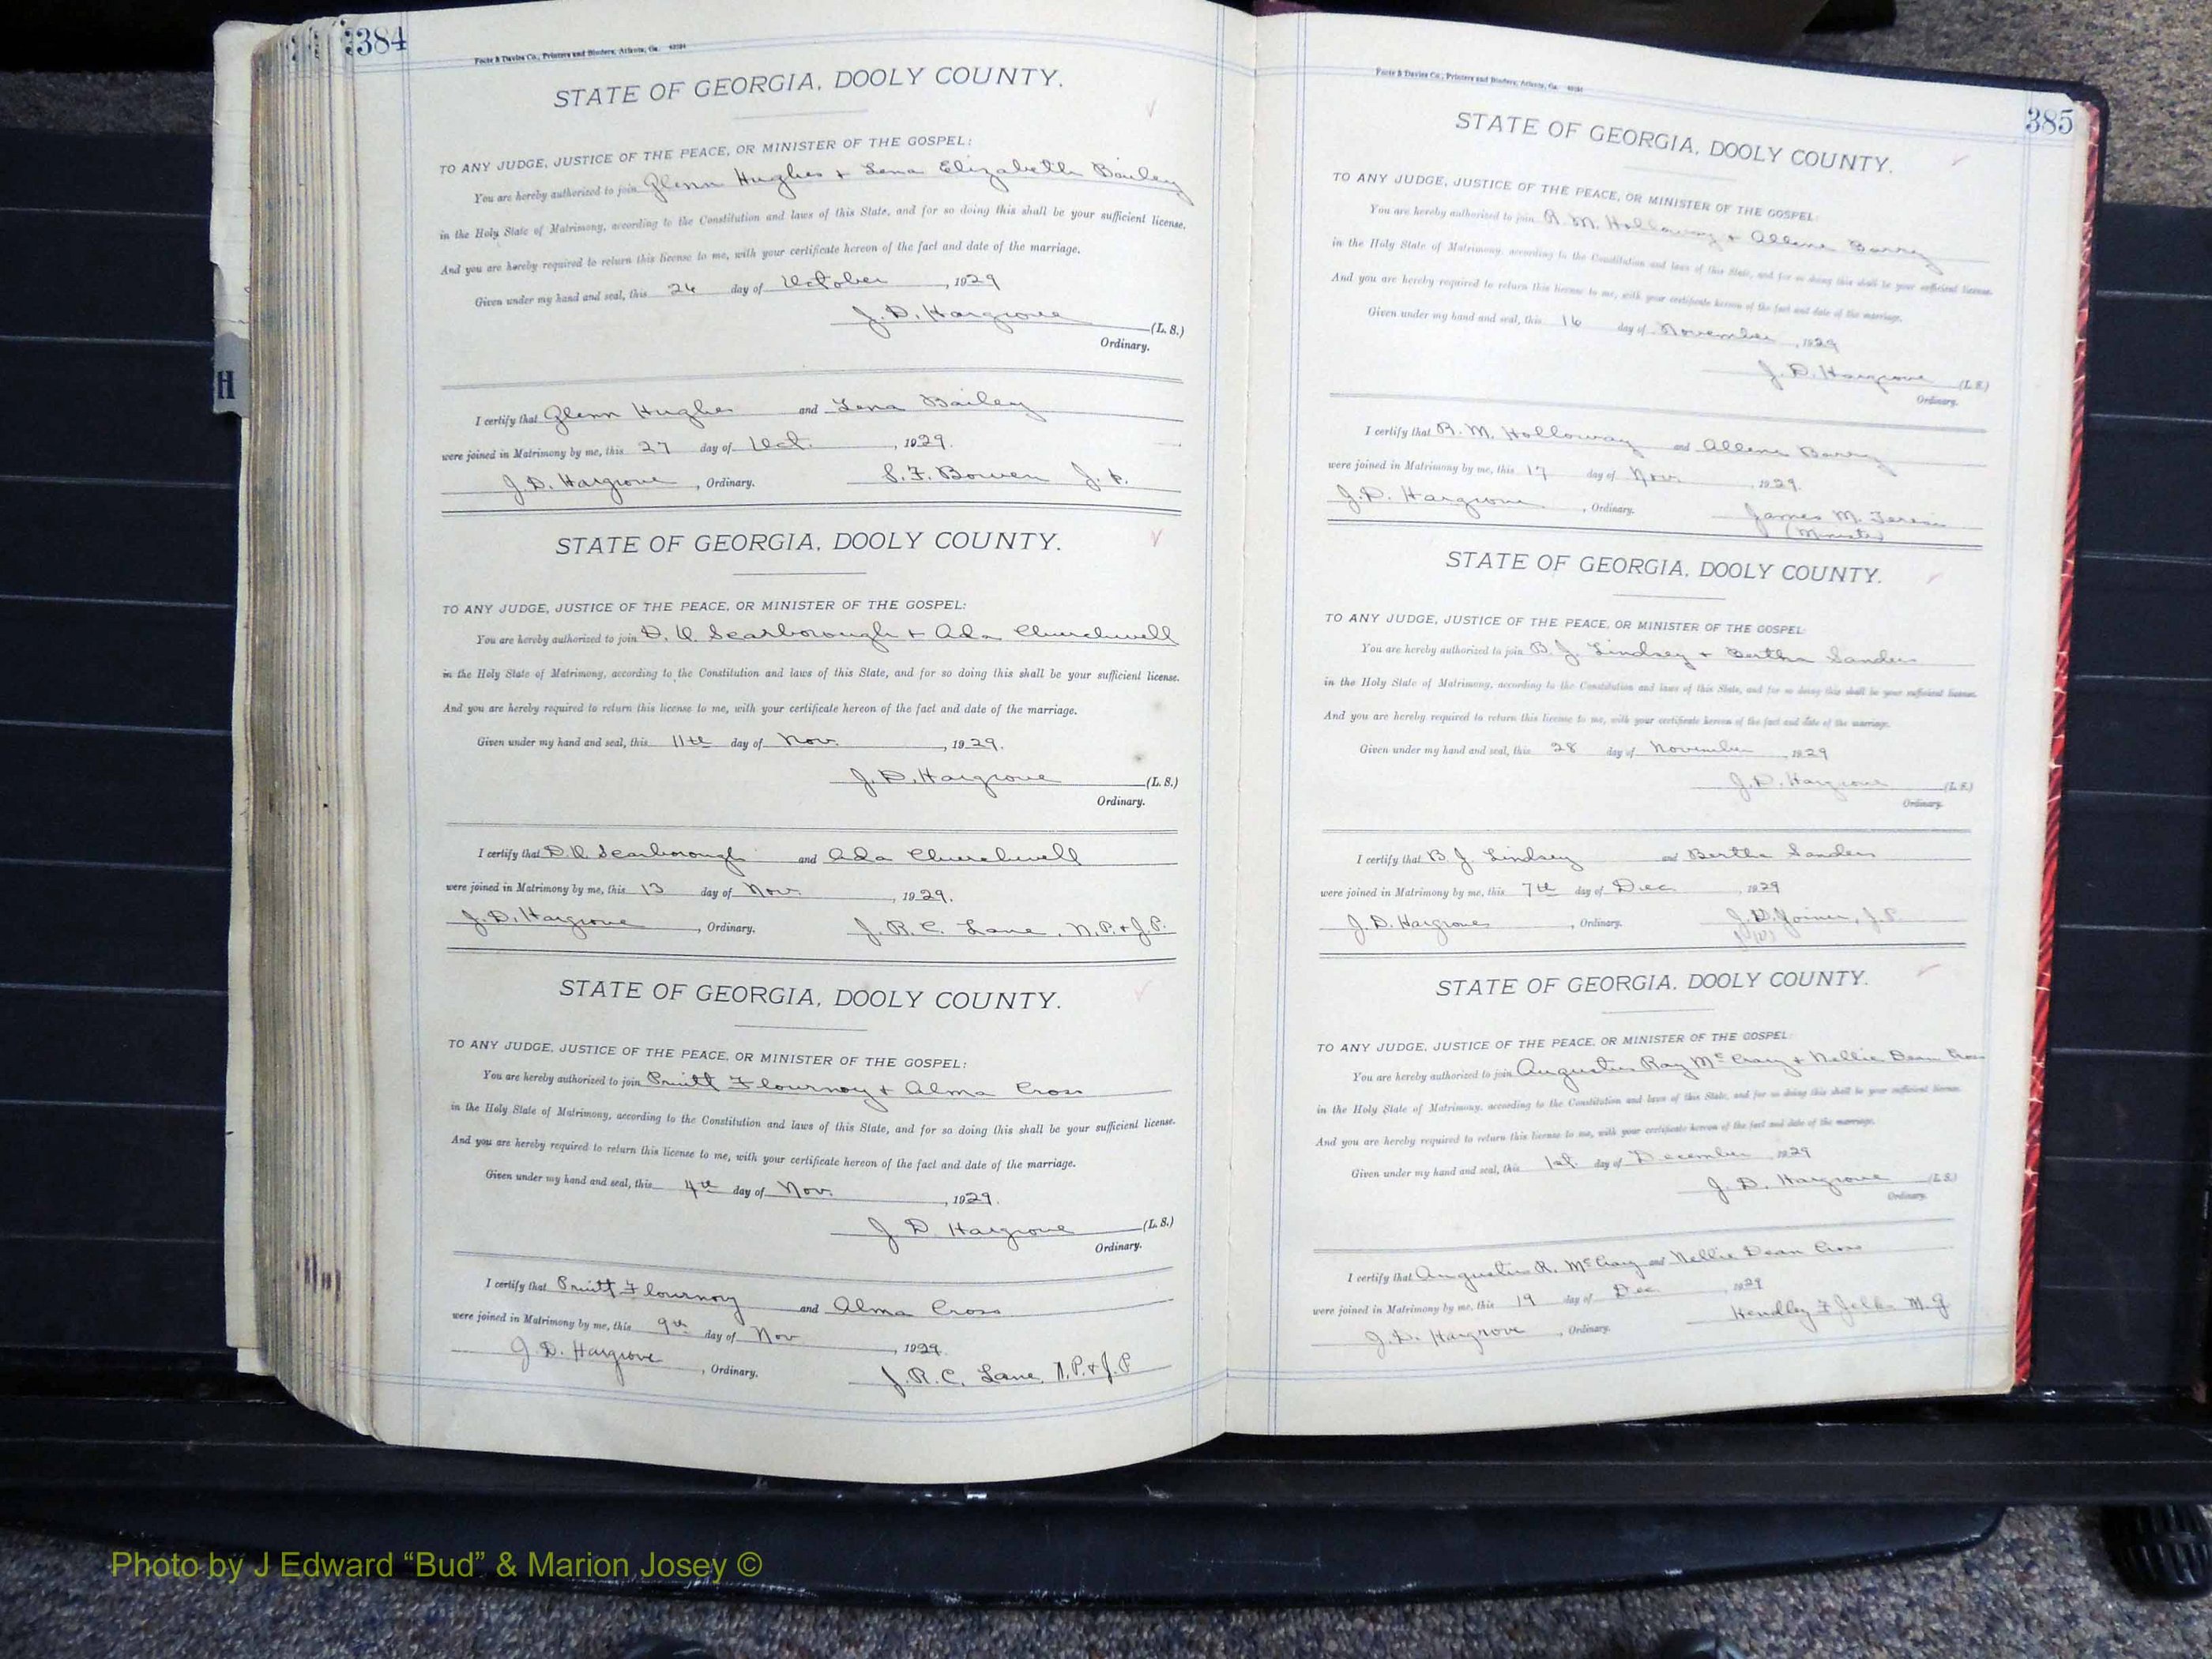 384
Foote & Davies Co., Printers and Binders, Atlanta, Ga.
STATE OF GEORGIA, DOOLY COUNTY.
TO ANY JUDGE, JUSTICE OF THE PEACE, OR MINISTER OF THE GOSPEL:
You are hereby authorized to join Glenn Hughes + Lena Elizabeth Bailey
in the Holy State of Matrimony, according to the Constitution and laws of this State, and for so doing this shall be your sufficient license.
And you are hereby required to return this license to me, with your certificate hereon of the fact and date of the marriage.
Given under my hand and seal, this 26 day of October, 1929
J. D. Hargrove (L. S.)
Ordinary.
H
I certify that Glenn Hughes and Lena Bailey
were joined in Matrimony by me, this 27 day of Oct., 1929.
J. D. Hargrove, Ordinary. S. F. Bowen J. P.
STATE OF GEORGIA, DOOLY COUNTY.
TO ANY JUDGE, JUSTICE OF THE PEACE, OR MINISTER OF THE GOSPEL:
You are hereby authorized to join D. Q. Scarborough + Ada Churchwell
in the Holy State of Matrimony, according to the Constitution and laws of this State, and for so doing this shall be your sufficient license.
And you are hereby required to return this license to me, with your certificate hereon of the fact and date of the marriage.
Given under my hand and seal, this 11th day of Nov., 1929.
J. D. Hargrove (L. S.)
Ordinary.
I certify that D. Q. Scarborough and Ada Churchwell
were joined in Matrimony by me, this 13 day of Nov., 1929.
J. D. Hargrove, Ordinary. J. R. C. Lane, N. P. + J. P.
STATE OF GEORGIA, DOOLY COUNTY.
TO ANY JUDGE, JUSTICE OF THE PEACE, OR MINISTER OF THE GOSPEL:
You are hereby authorized to join Pruitt Flournoy + Alma Cross
in the Holy State of Matrimony, according to the Constitution and laws of this State, and for so doing this shall be your sufficient license.
And you are hereby required to return this license to me, with your certificate hereon of the fact and date of the marriage.
Given under my hand and seal, this 4th day of Nov., 1929.
J. D. Hargrove (L. S.)
Ordinary.
I certify that Pruitt Flournoy and Alma Cross
were joined in Matrimony by me, this 9th day of Nov, 1929.
J. D. Hargrove, Ordinary. J. R. C. Lane, N. P. + J. P
385
Foote & Davies Co., Printers and Binders, Atlanta, Ga.
STATE OF GEORGIA, DOOLY COUNTY.
TO ANY JUDGE, JUSTICE OF THE PEACE, OR MINISTER OF THE GOSPEL:
You are hereby authorized to join R. M. Holloway + Allene Barry
in the Holy State of Matrimony, according to the Constitution and laws of this State, and for so doing this shall be your sufficient license.
And you are hereby required to return this license to me, with your certificate hereon of the fact and date of the marriage.
Given under my hand and seal, this 16 day of November, 1929
J. D. Hargrove (L. S.)
Ordinary.
I certify that R. M. Holloway and Allene Barry
were joined in Matrimony by me, this 17 day of Nov., 1929.
J. D. Hargrove, Ordinary. James M.
(Minister)
STATE OF GEORGIA, DOOLY COUNTY.
TO ANY JUDGE, JUSTICE OF THE PEACE, OR MINISTER OF THE GOSPEL:
You are hereby authorized to join B. J. Lindsey + Bertha Sanders
in the Holy State of Matrimony, according to the Constitution and laws of this State, and for so doing this shall be your sufficient license.
And you are hereby required to return this license to me, with your certificate hereon of the fact and date of the marriage.
Given under my hand and seal, this 28 day of November, 1929
J. D. Hargrove (L. S.)
Ordinary.
I certify that B. J. Lindsey and Bertha Sanders
were joined in Matrimony by me, this 7th day of Dec., 1929
J. D. Hargrove, Ordinary. J. D. Joiner, J. P.
STATE OF GEORGIA, DOOLY COUNTY.
TO ANY JUDGE, JUSTICE OF THE PEACE, OR MINISTER OF THE GOSPEL:
You are hereby authorized to join Augustus Ray McCrary + Nellie Dean Cross
in the Holy State of Matrimony, according to the Constitution and laws of this State, and for so doing this shall be your sufficient license.
And you are hereby required to return this license to me, with your certificate hereon of the fact and date of the marriage.
Given under my hand and seal, this 1st. day of December, 1929
J. D. Hargrove (L. S.)
Ordinary.
I certify that Augustus R. McCrary and Nellie Dean Cross
were joined in Matrimony by me, this 19 day of Dec, 1929
J. D. Hargrove, Ordinary. Hendley F Jelks M. G
Photo by J Edward “Bud” & Marion Josey ©